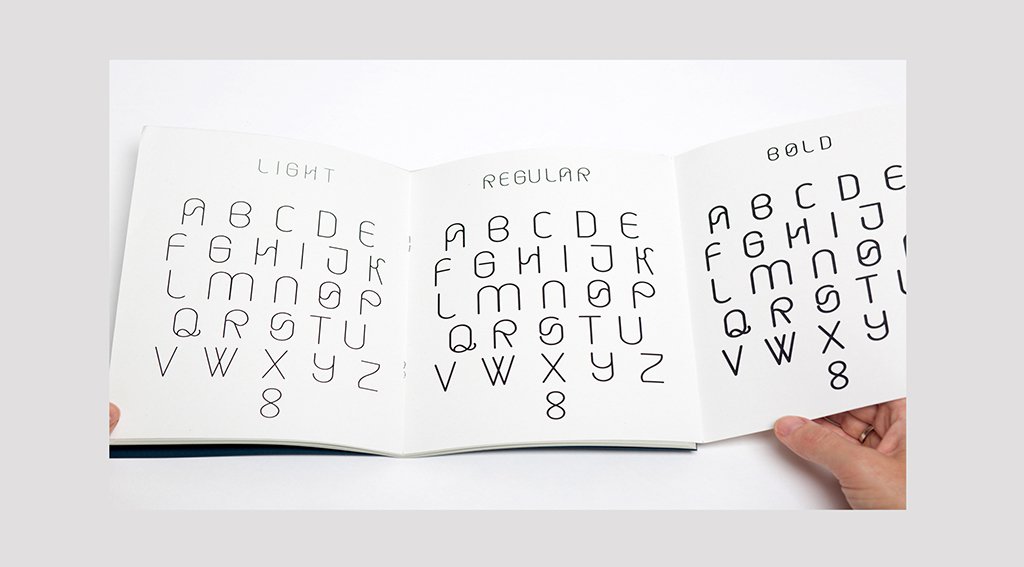 LIGHT
A B C D E
F G H I J K
L M N O P
Q R S T U
V W X Y Z
8
REGULAR
A B C D E
F G H I J K
L M N O P
Q R S T U
V W X Y Z
8
BOLD
A B C D E
F G H I J
L M N O
Q R S T
V W X Y
8